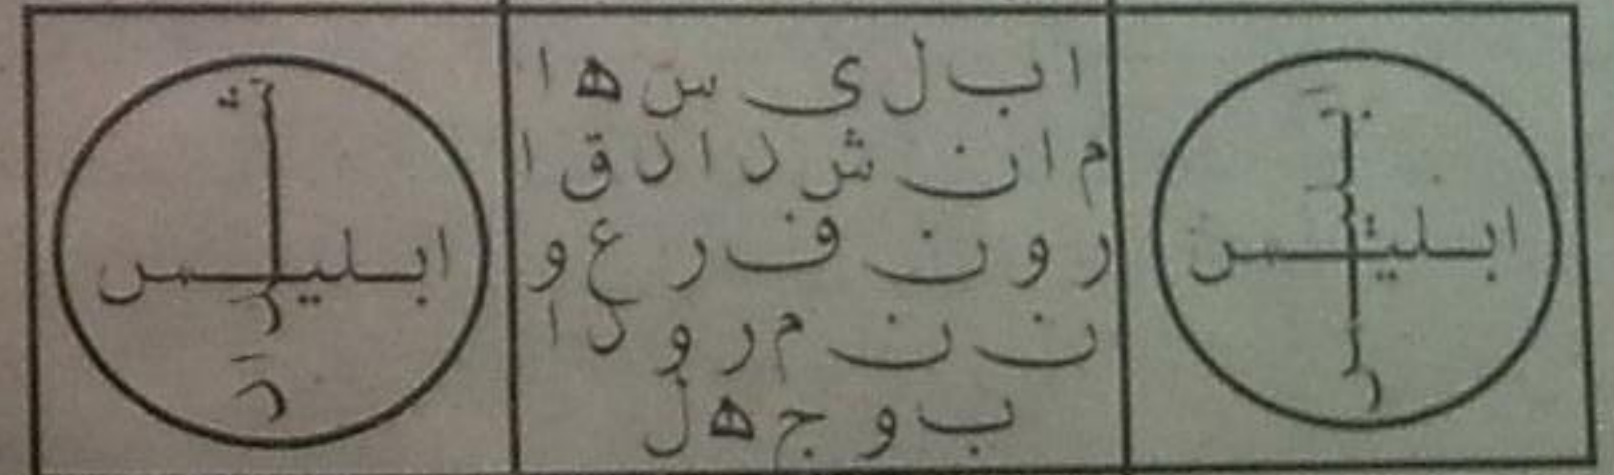 ابليس
ا ب ل ى س ه ا
م ا ن ش د ا د ق ا
ر و ن ف ر ع و
ن ن م ر و د ا
ب و ج ه ل
ابليس